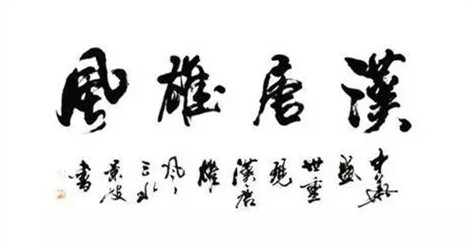 漢唐雄風
中華
盛
世重
現
漢唐
雄
風
三水
書